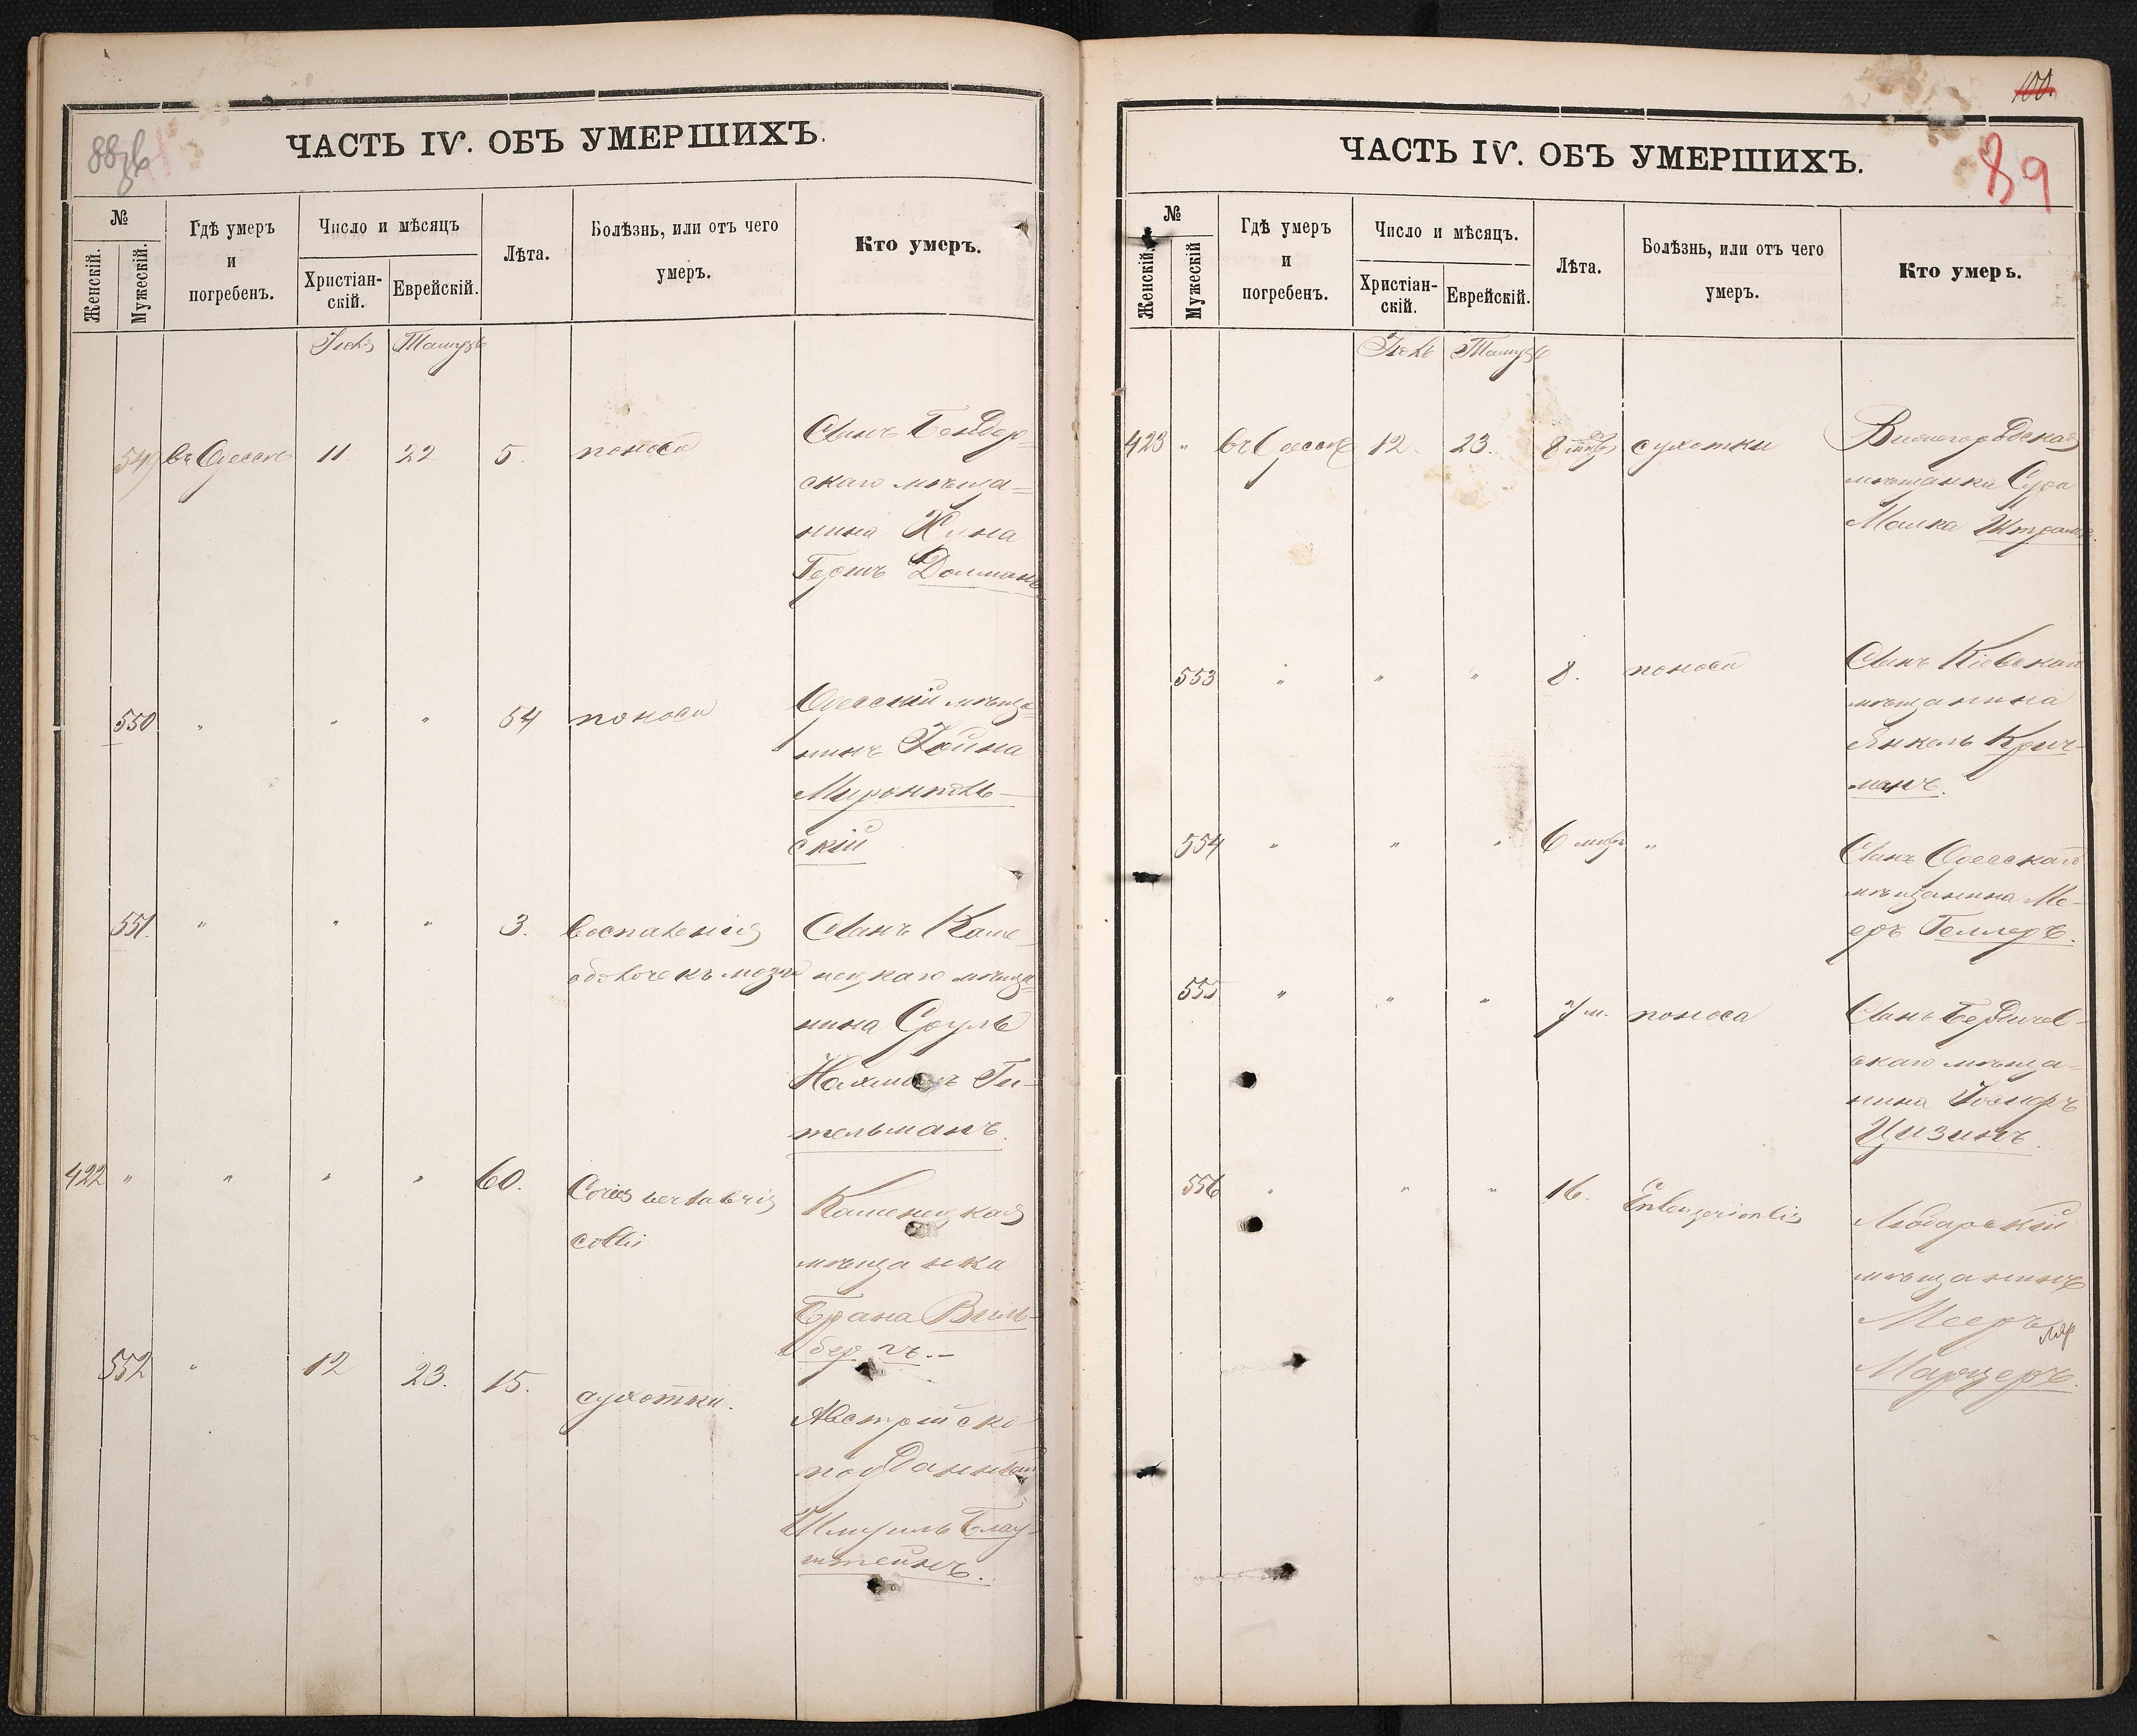 ЧАСТЬ IV. ОБЪ УМЕРШИХЪ.
№
Женскій.
Мужескій.
Гдѣ умеръ
и
погребенъ.
Число и мѣсяцъ
Христіан-
скій.
Еврейскій.
Лѣта.
Болѣзнь, или отъ чего
умеръ.
Кто умеръ.
Іюль Тамузъ
549 въ Одессѣ 11 22 5. поноса Сынъ Бендер-
скаго мѣща=
нина
Гершъ Долманъ
550 " " " 54 поноса Одесскій мѣща-
нинъ Іойна
скій
551. " " " 3. воспаленія Сынъ Каме-
оболочекъ мозга нецкаго мѣща=
нина Сруль
Нахманъ Ги-
тельманъ.
422 " " " " 60. Caries vertabris Каменецкая
colli
мѣщанка
Брана Виль-
бергъ.-
552 " 12 23. 15. сухотки. Австрійско
подданный
Шмуиль Блау-
штейнъ.
100.
ЧАСТЬ IV. ОБЪ УМЕРШИХЪ.
89
№
Женскій.
Мужескій
Гдѣ умеръ
и
погребенъ.
Число и мѣсяцъ.
Христіан-
скій.
Еврейскій.
Лѣта.
Болѣзнь, или отъ чего
умеръ.
Кто умеръ.
Іюль Тамузъ
423 " въ Одессѣ 12. 23. 8 сухотки
мѣщанка Сура
Малка
553 " " " 8. поноса Сынъ Кіевскаго
мѣщанина
Янкель Крич-
манъ.
554 " " " 6 " Сынъ Одесскаго
мѣщанина Ме-
еръ Геллеръ.
555 " " " 7 м. поноса Сынъ Бердичев-
скаго мѣща=
нина
Цизинъ.
556 " " " 16. Любарскій
мѣщанинъ
Мееръ
Марцеръ.